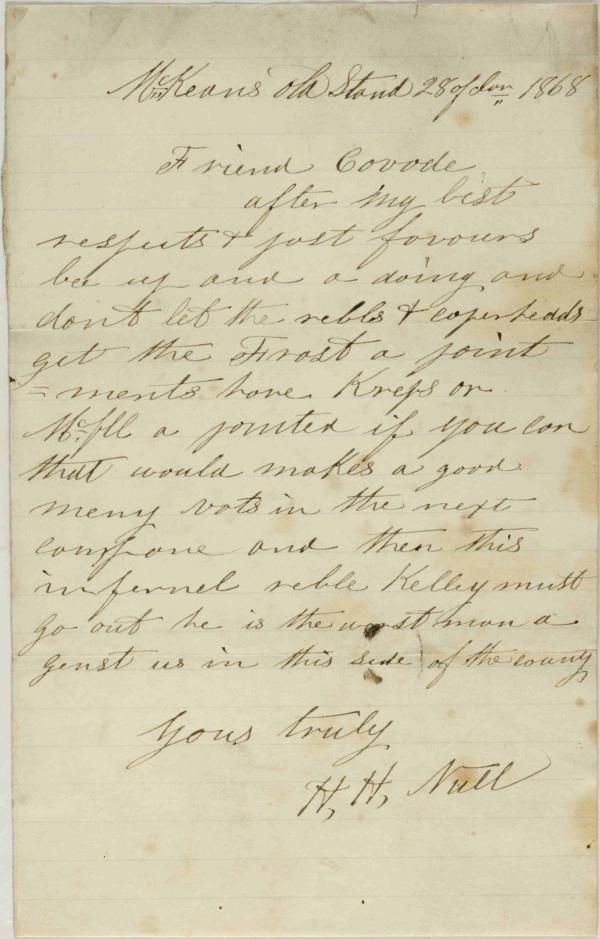 McKeans old Stand 28 of Jan 1868
Friend Covode
after my best
respects & past favours
bee up and a doing and
dont let the rebls & coperheads
get the Frost a point
=ments have Kreps or
a pointed if you can
that would makes a good
meny vots in the next
compane and then this
infernel reble Kelley must
go out he is the worst man a
genst us in this side of the county
Yous truly
H, H, Null